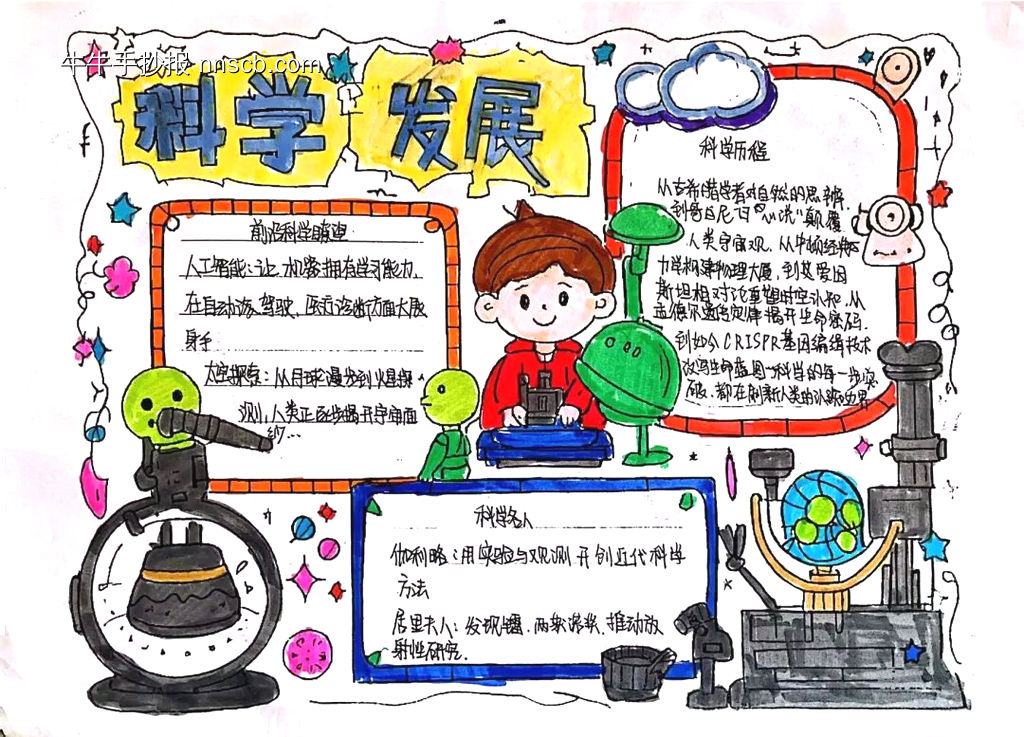 牛牛手抄报 nnscb.com
科学发展
前沿科学瞭望
人工智能：让机器拥有学习能力，
在自动驾驶、医疗诊断方面大展
身手
太空探索：从月球漫步到火星探
测，人类正逐步揭开宇宙面
纱…
科学历程
从古希腊学者对自然的思辨，
到哥白尼"日心说"颠覆
人类宇宙观，从牛顿经典
力学构建物理大厦，到爱因
斯坦相对论重塑时空认知，从
孟德尔遗传定律揭开生命密码，
到如今CRISPR基因编辑技术
改写生命蓝图一科学的每一步突
破，都在刷新人类的认知边界
科学名人
伽利略：用实验与观测开创近代科学
方法
居里夫人：发现镭，两获诺奖，推动放
射性研究.